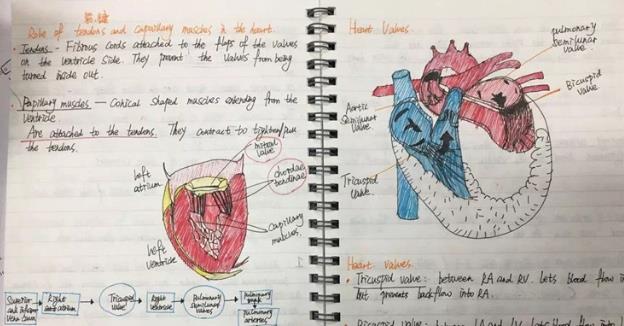 腱
Role of tendons and capillary muscles in the heart.
• Tendons - Fibrous cords attached to the flaps of the valves
on the ventricle side. They prevent the valves from being
turned inside out.
• Papillary muscles — Conical shaped muscles extending from the
ventricle.
Are attached to the tendons. They contract to tighten/pull
the tendons.
mitral
valve
left
atrium
chordae
tendinae
Capillary
muscles.
left
ventricle
Superior
and inferior
vena cava
Right
atrium
Tricuspid
valve
Right
ventricle
Pulmonary
semilunar
valves
Pulmonary
Pulmonary
arteries
Heart Valves.
pulmonary
semilunar
valve.
Bicuspid
valve.
Aortic
Semilunar
valve
Tricuspid
valve.
Heart valves.
• Tricuspid valve: between RA and RV. Lets blood flow
but prevents backflow into RA.